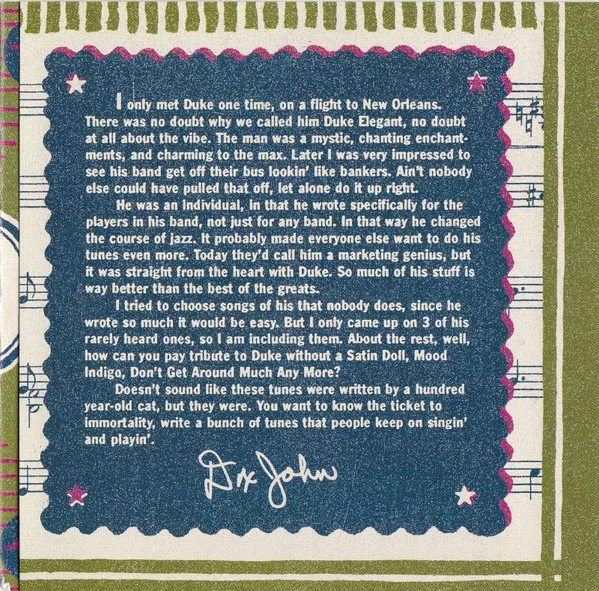 I only met Duke one time, on a flight to New Orleans.
There was no doubt why we called him Duke Elegant, no doubt
at all about the vibe. The man was a mystic, chanting enchant-
ments, and charming to the max. Later I was very impressed to
see his band get off their bus lookin' like bankers. Ain't nobody
else could have pulled that off, let alone do it up right.
He was an Individual, in that he wrote specifically for the
players in his band, not just for any band. In that way he changed
the course of jazz. It probably made everyone else want to do his
tunes even more. Today they'd call him a marketing genius, but
it was straight from the heart with Duke. So much of his stuff is
way better than the best of the greats.
I tried to choose songs of his that nobody does, since he
wrote so much it would be easy. But I only came up on 3 of his
rarely heard ones, so I am including them. About the rest, well,
how can you pay tribute to Duke without a Satin Doll, Mood
Indigo, Don't Get Around Much Any More?
Doesn't sound like these tunes were written by a hundred
year-old cat, but they were. You want to know the ticket to
immortality, write a bunch of tunes that people keep on singin'
and playin'.
Dr John